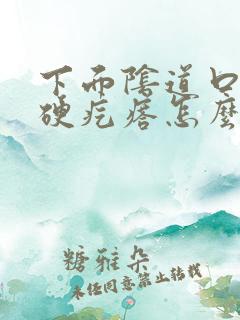 下而陰道口
硬疙瘩怎麽
糖雅朵
未经同意禁止转载